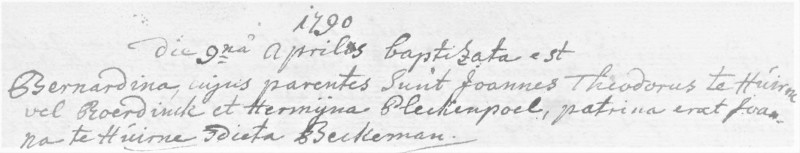 1790
die 9nâ Aprilis baptizata est
Bernardina, cujus parentes sunt Joannes Theodorus te Húirne
vel Roerdinck et Hermyna Pleckenpoel, patrina erat Joan-
na te Húirne dicta Beckeman.